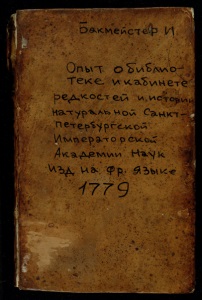 Бакмейстер И.
Опыт о библио-
теке и кабинете
редкостей и истории
натуральной Санкт-
Петербургской
Императорской
Академии Наук
изд. на фр. языке
1779